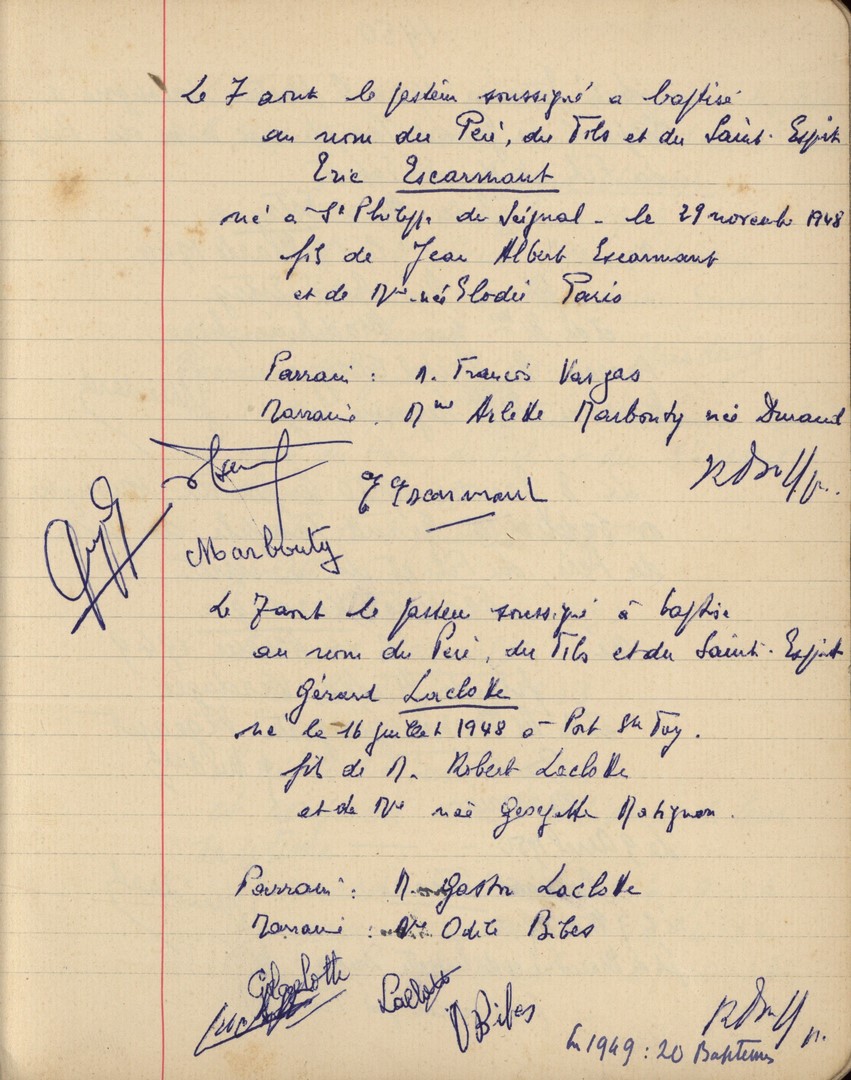 Le 7 aout le pasteur soussigné a baptisé
au nom du Père, du Fils et du Saint-Esprit
Eric Escarmant
né à St Philippe du Seignal - le 29 novembre 1948
fils de Jean Albert Escarmant
et de Me née Elodie Paris
Parrain : M. Francis Vargas
Marraine . Mme Arlette Marbouty née Durand
J Escarmant
Marbouty
Le 7 aout le pasteur soussigné à baptisé
au nom du Père, du Fils et du Saint-Esprit
Gérard Laclotte
né le 16 juillet 1948 à Port Ste Foy.
fils de M. Robert Laclotte
et de Me née Georgette Matignon.
Parrain : M. Gaston Laclotte
Marraine : Me Odile Bibes
G Laclotte
Laclotte
O Bibes
En 1949 : 20 Baptemes